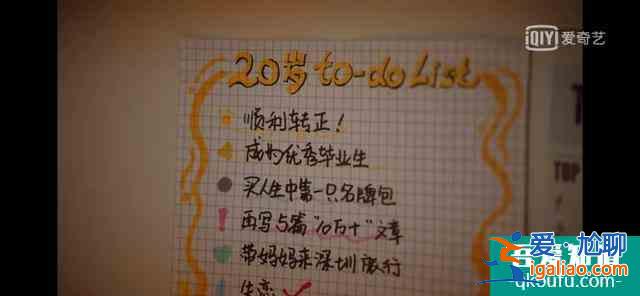 iQIYI 爱奇艺
20岁 to-do List
顺利转正!
成为优秀毕业生
买人生中第一只名牌包
再写5篇"10万+"文章
带妈妈来深圳旅行
失恋
TOP
爱·尬聊
www.igaliao.com